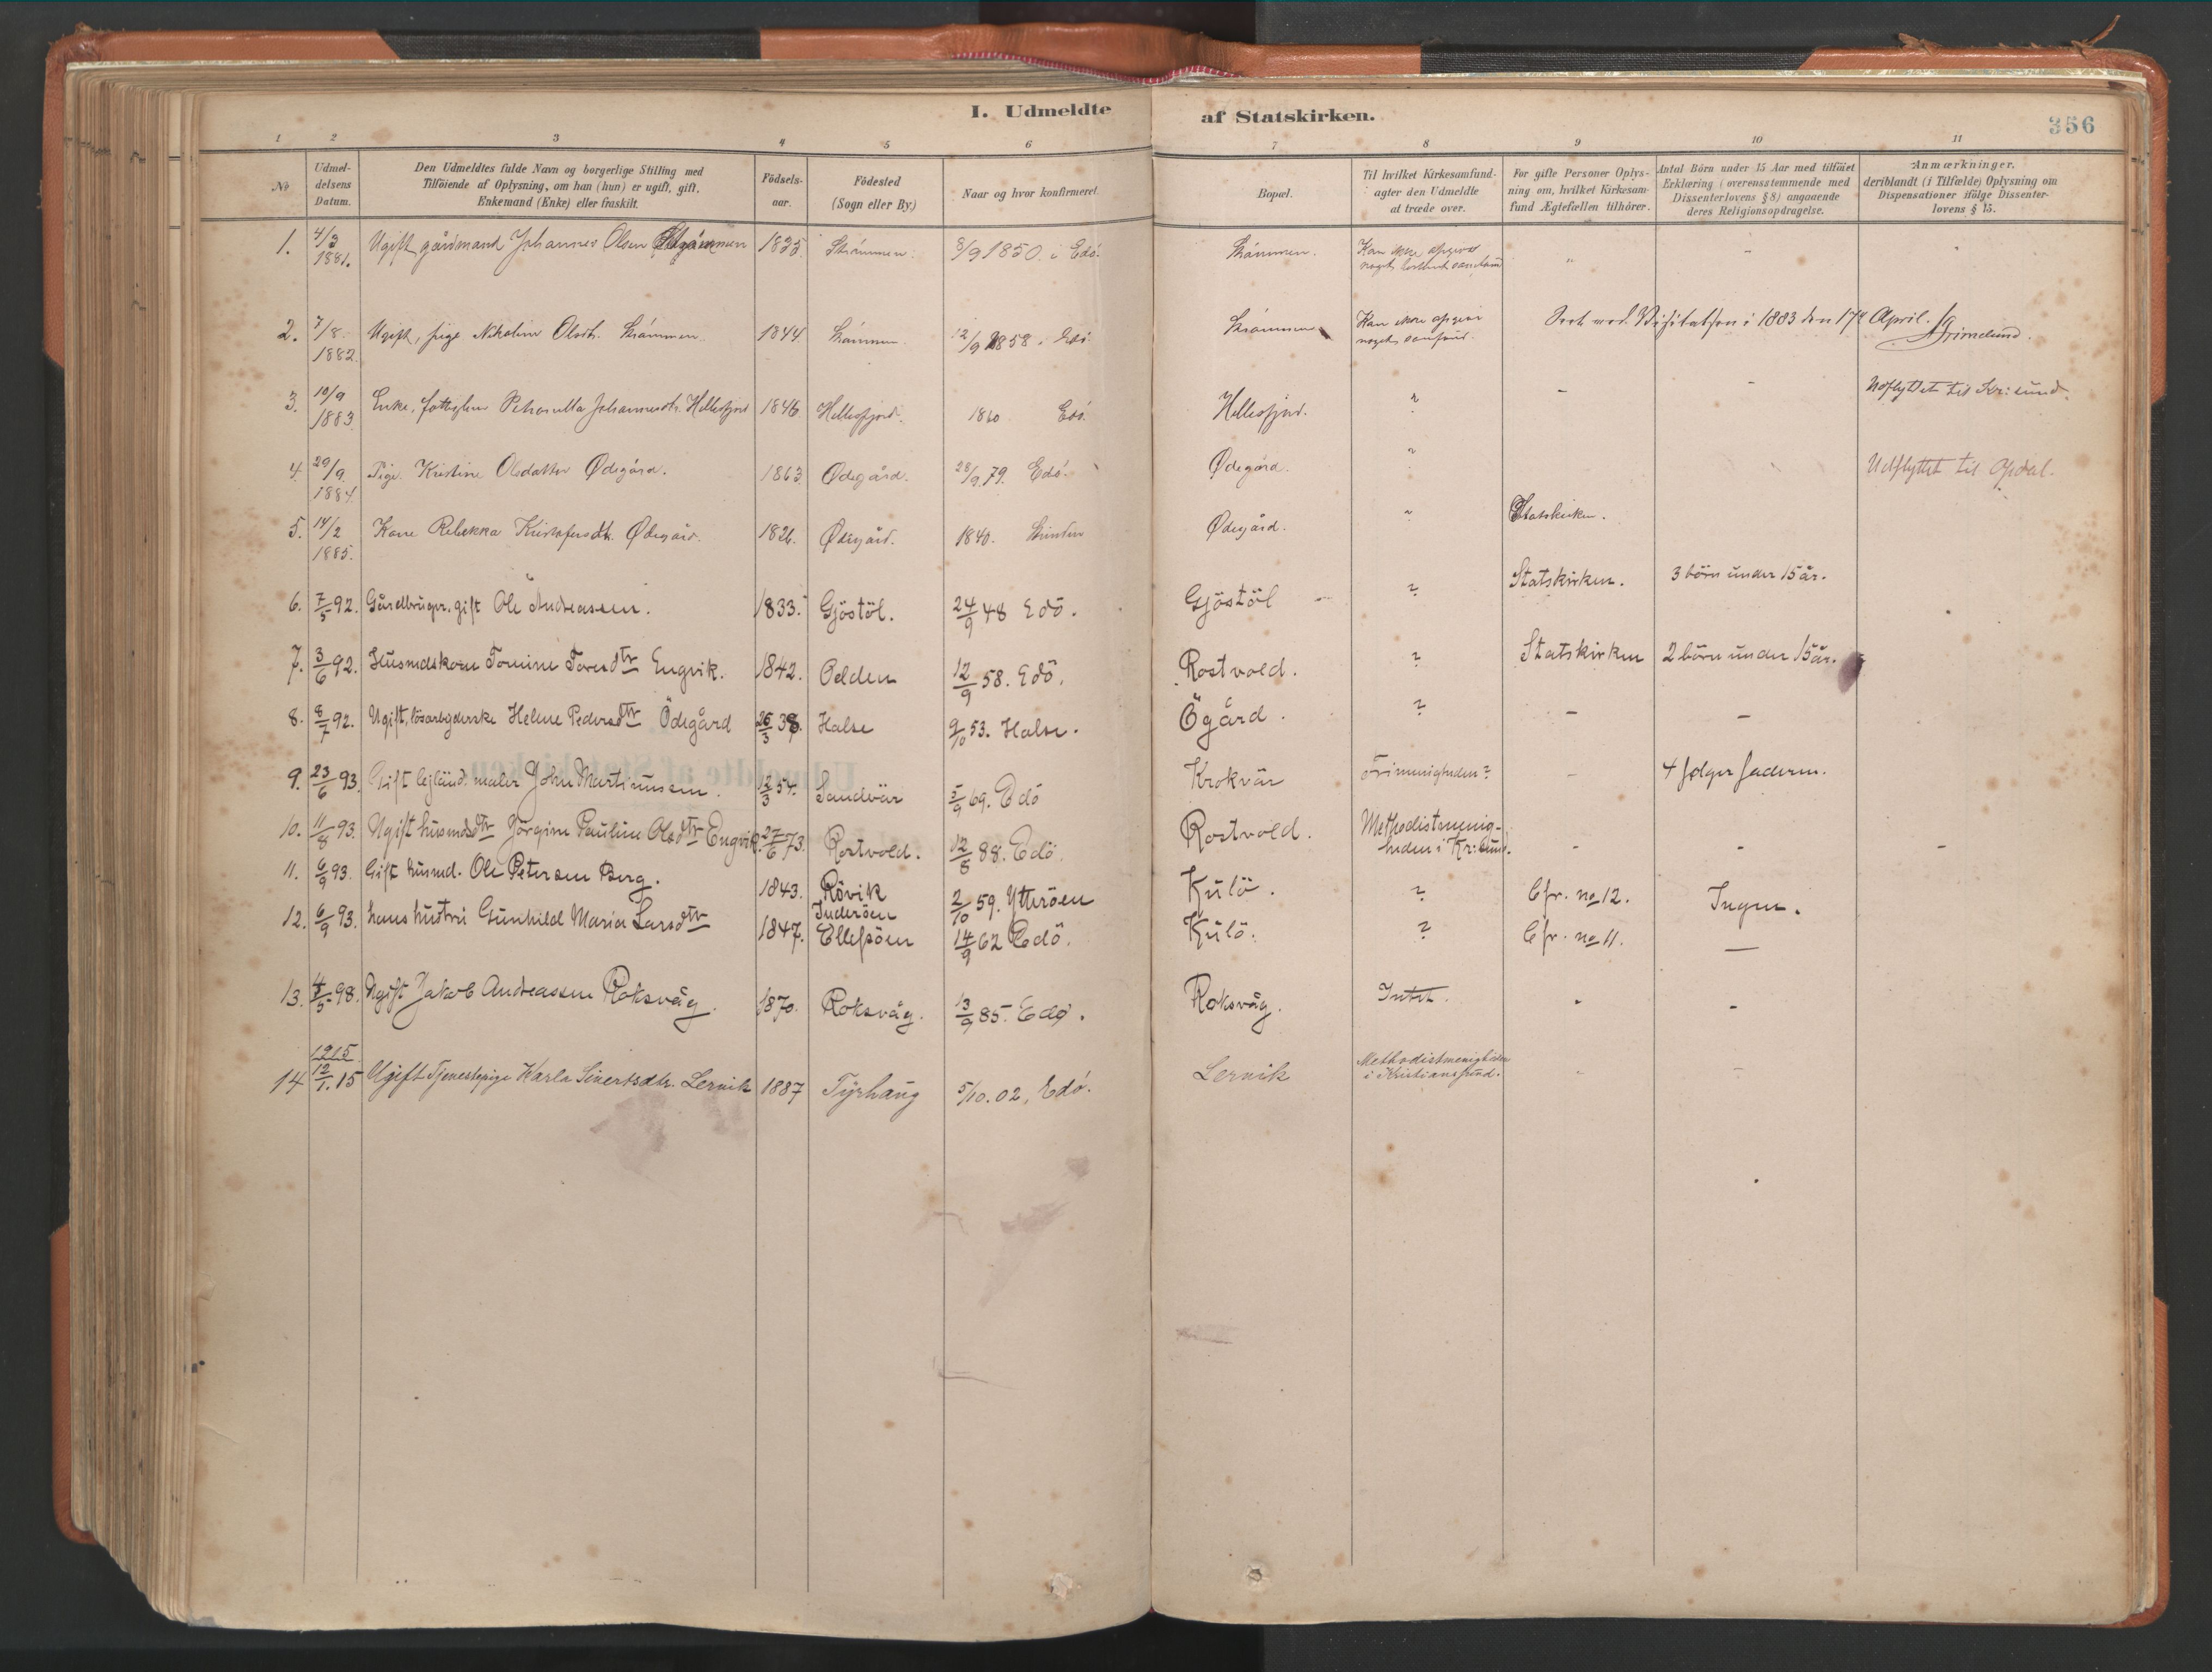 I. Udmeldte af Statskirken.
356
1 2 3 4 5 6 7 8 9 10 11
No
Udmel-
delsens
Datum.
Den Udmeldtes fulde Navn og borgerlige Stilling med
Tilföiende af Oplysning, om han (hun) er ugift, gift,
Enkemand (Enke) eller fraskilt.
Födsels-
aar.
Födested
(Sogn eller By)
Naar og hvor konfirmeret.
Bopæl.
Til hvilket Kirkesamfund-
agter den Udmeldte
at træde over.
For gifte Personer Oplys-
ning om, hvilket Kirkesam-
fund Ægtefællen tilhörer.
Antal Börn under 15 Aar med tilföiet
Erklæring (overensstemmende med
Dissenterlovens § 8) angaaende
deres Religionsopdragelse.
Anmærkninger,
deriblandt (i Tilfælde) Oplysning om
Dispensationer ifölge Dissenter-
lovens § 15.
1. 4/3 1881. Ugift gårdmand Johannes Olsen 1835. Strömmen. 8/9 1850. i Edö. Strömmen. Kan ikke opgive
noget bestemt samfund " - "
2. 7/8 1882. Ugift, pige Olsdtr. Strömmen. 1844. Strömmen. 12/9 1858. Edö. Strömmen Kan ikke opgive
noget samfund. Visitatsen i 1883 den 17de April. Grimelund.
3. 10/9 1883. Enke, Johannesdtr. Hellesfjord 1846. Hellesfjord. 1860 Edö. Hellesfjord. " - - Udflyttet til Kr:sund.
4. 29/9 1884. Pige Kristine Olsdatter Ødegård. 1863. Ødegård. 28/9.79. Edö. Ødegård. " Udflyttet til Opdal.
5. 14/2 1885. Kone Rebekka Kristofersdtr. Ødegård. 1826. Ødegård. 1840. Ødegård. " Statskirken.
6. 7/5 92. Gårdbruger. gift Ole Andreassen. 1833. Gjöstöl. 24/9 48 Edö. Gjöstöl ? Statskirken. 3 börn under 15 år.
7. 3/6 92. Husmdskone Tomine Toresdtr Engvik. 1842. Odden 12/9 58. Edö. Rostvold. ? Statskirken 2 börn under 15 år.
8. 8/7 92. Ugift, lösarbejderske Helene Pedersdtr Ödegård 26/3 38. Halse 9/10 53. Halse. Ögård. ? - -
9. 23/6 93. Gift lejländ. maler John Martinussen. 12/3 54. Sandvär 5/9 69. Edö Krokvär Frimenigheden? - 4 fölger faderen.
10. 11/8 93. Ugift husmdsdtr Jörgine Pauline Olsdtr Engvik. 27/6 73. Rostvold. 12/8 88. Edö. Rostvold. Methodistmenig-
heden i Kr:sund. - - -
11. 6/9 93. Gift husmd. Ole Petersen Berg. 1843. Rövik
Inderöen 2/10 59. Ytteröen Kulö. ? Cfr. no 12. Ingen.
12. 6/9 93. hans hustru Gunhild Maria Larsdtr 1847. Ellefsöen 14/9 62 Edö. Kulö. ? Cfr. no 11. -
13. 4/5 98. Ugift Jakob Andreassen Roksvåg. 1870. Roksvåg. 13/9 85. Edø. Roksvåg. Intet. " -
14 1915. 12/1. 15 Ugift Tjenestepige Karla Sivertsdtr. Lervik 1887 Tyrhaug 5/10. 02, Edö. Lervik Methodistmenigheden
i Kristiansund. " -